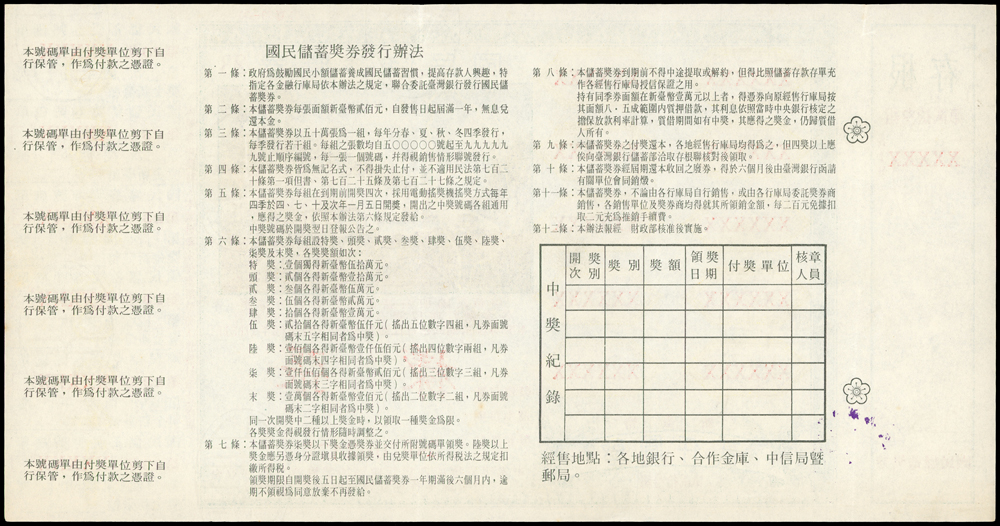 本號碼單由付獎單位剪下自
行保管，作爲付款之憑證。
本號碼單由付獎單位剪下自
行保管，作爲付款之憑證。
本號碼單由付獎單位剪下自
行保管，作爲付款之憑證。
本號碼單由付獎單位剪下自
行保管，作爲付款之憑證。
本號碼單由付獎單位剪下自
行保管，作爲付款之憑證。
本號碼單由付獎單位剪下自
行保管，作爲付款之憑證。
國民儲蓄獎券發行辦法
第一條：政府爲鼓勵國民小額儲蓄養成國民儲蓄習慣，提高存款人興趣，特
指定各金融行庫局依本辦法之規定，聯合委託臺灣銀行發行國民儲
蓄獎券。
第二條：本儲蓄獎券每張面額新臺幣貳佰元，自發售日起屆滿一年，無息兌
還本金。
第三條：本儲蓄獎券以五十萬張爲一組，每年分春、夏、秋、冬四季發行，
每季發行若干組。每組之張數均自五〇〇〇〇〇號起至九九九九九
九號止順序編號，每一張一個號碼，幷得視銷售情形聯號發行。
第四條：本儲蓄獎券皆爲無記名式，不得掛失止付，並不適用民法第七百二
十條第一項但書、第七百二十五條及第七百二十七條之規定。
第五條：本儲蓄獎券每組在到期前開獎四次，採用電動搖獎機搖獎方式每年
四季於四、七、十及次年一月五日開獎，開出之中獎號碼各組通用
，應得之獎金，依照本辦法第六條規定發給。
中獎號碼於開獎翌日登報公告之。
第六條：本儲蓄獎券每組設特獎、頭獎、貳獎、叁獎、肆獎、伍獎、陸獎、
柒獎及末獎，各獎獎額如次：
特獎：壹個獨得新臺幣伍拾萬元。
頭獎：貳個各得新臺幣壹拾萬元。
貳獎：叁個各得新臺幣伍萬元。
叁獎：伍個各得新臺幣貳萬元。
肆獎：拾個各得新臺幣壹萬元。
伍獎：貳拾個各得新臺幣伍仟元（搖出五位數字四組，凡券面號
碼末五字相同者爲中獎）。
陸獎：壹佰個各得新臺幣壹仟伍佰元（搖出四位數字兩組，凡券
面號碼末四字相同者爲中獎）。
柒獎：壹仟伍佰個各得新臺幣貳佰元（搖出三位數字三組，凡券
面號碼末三字相同者爲中獎）。
末獎：壹萬個各得新臺幣壹佰元（搖出二位數字二組，凡券面號
碼末二字相同者爲中獎）。
同一次開獎中二種以上獎金時，以領取一種獎金爲限。
各獎獎金得視發行情形隨時調整之。
第七條：本儲蓄獎券柒獎以下獎金憑獎券並交付所附號碼單領獎。陸獎以上
獎金應另憑身分證填具收據領獎，由兌獎單位依所得稅法之規定扣
繳所得稅。
領獎期限自開獎後五日起至國民儲蓄獎券一年期滿後六個月內，逾
期不領視爲同意放棄不再發給。
第八條：本儲蓄獎券到期前不得中途提取或解約，但得比照儲蓄存款存單充
作各經售行庫局授信保證之用。
持有同季券面額在新臺幣壹萬元以上者，得憑券向原經售行庫局按
其面額八·五成範圍內質押借款，其利息依照當時中央銀行核定之
擔保放款利率計算，質借期間如有中獎，其應得之獎金，仍歸質借
人所有。
第九條：本儲蓄獎券之付獎還本，各地經售行庫局均得爲之，但四獎以上應
俟向臺灣銀行儲蓄部洽取存根聯核對後領取。
第十條：本儲蓄獎券經屆期還本收回之廢券，得於六個月後由臺灣銀行函請
有關單位會同銷燬。
第十一條：本儲蓄獎券，不論由各行庫局自行銷售，或由各行庫局委託獎券商
銷售，各銷售單位及獎券商均得就其所領銷金額，每二百元免據扣
取二元充爲推銷手續費。
第十二條：本辦法報經 財政部核准後實施。
中獎紀錄
開獎次別 獎別 獎額 領獎日期 付獎單位 核章人員
經售地點：各地銀行、合作金庫、中信局曁
郵局。